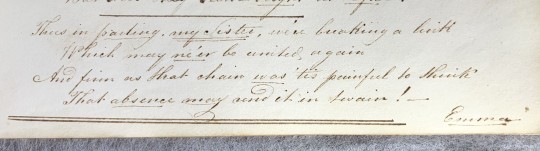 Thus in parting, my Sister, we're breaking a link
Which may ne'er be united, again
And firm as that chain was 'tis painful to think
That absence may rend it in twain! —
Emma